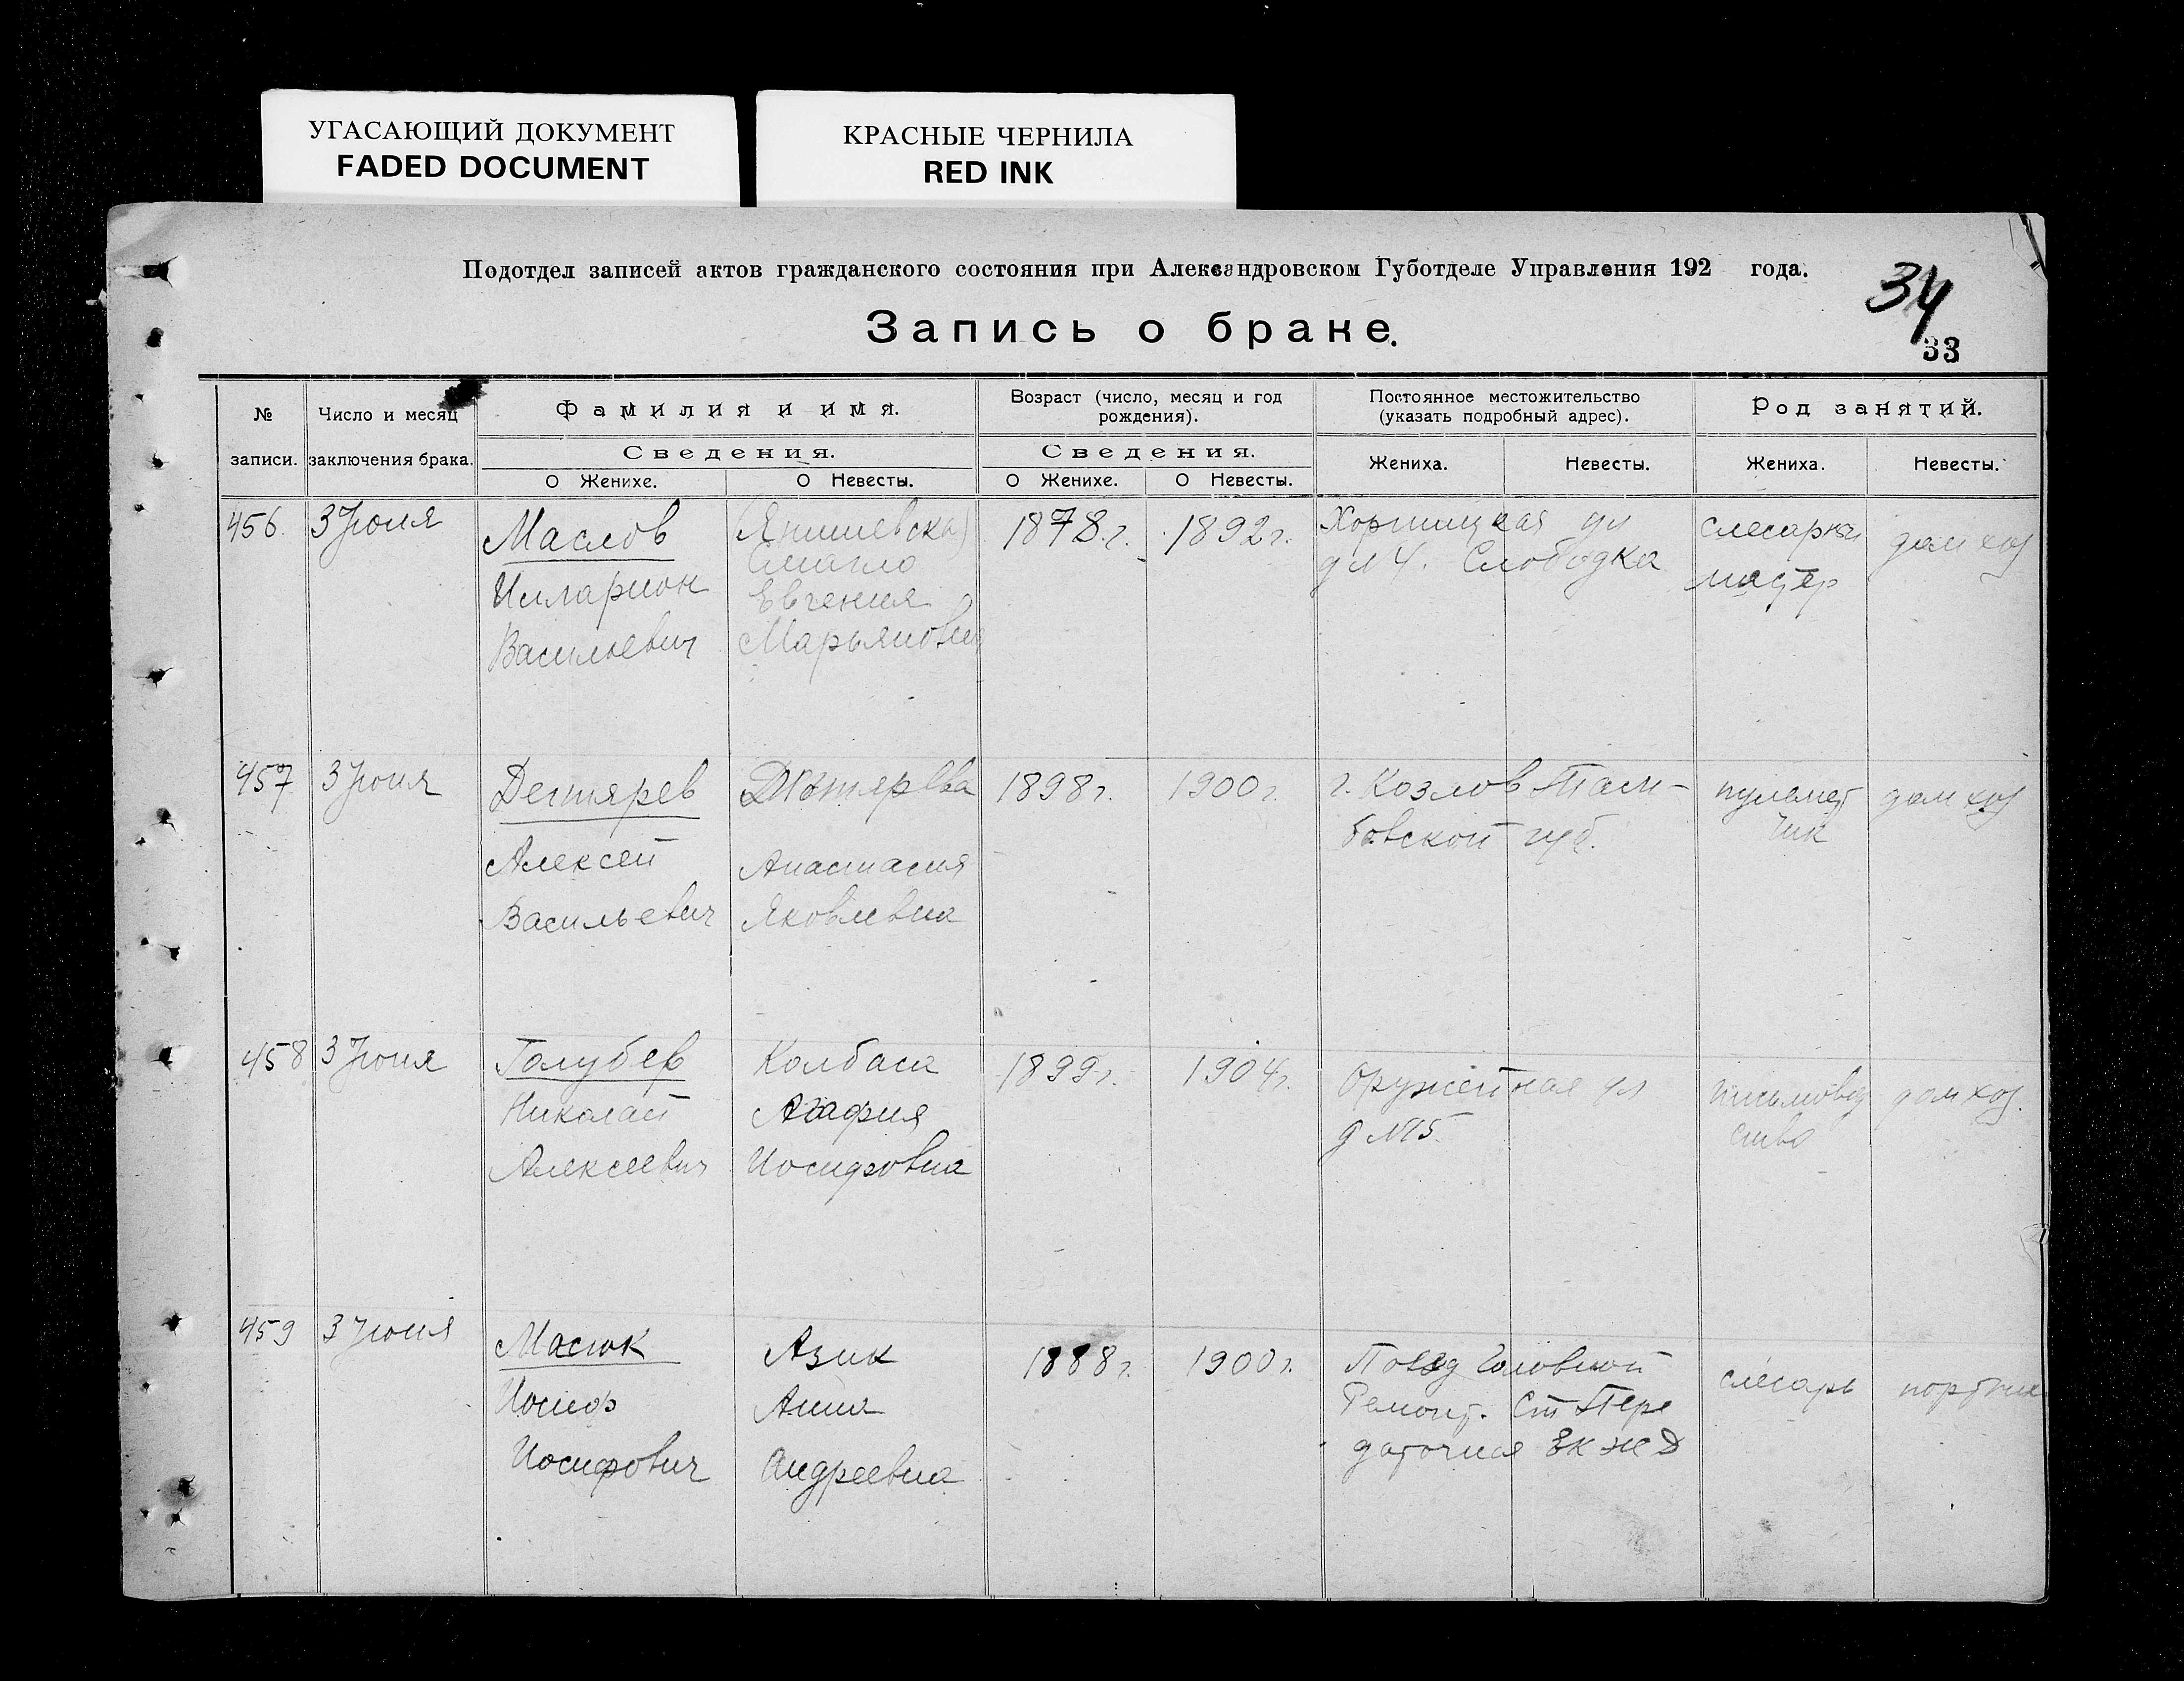 УГАСАЮЩИЙ ДОКУМЕНТ
FADED DOCUMENT
КРАСНЫЕ ЧЕРНИЛА
RED INK
Подотдел записей актов гражданского состояния при Александровском Губотделе Управления 192 года.
34
Запись о браке.
33
№ записи.
Число и месяц заключения брака.
Фамилия и имя.
Сведения.
О Женихе.
О Невесты.
Возраст (число, месяц и год рождения).
Сведения.
О Женихе.
О Невесты.
Постоянное местожительство (указать подробный адрес).
Жениха.
Невесты.
Род занятий.
Жениха.
Невесты.
456.
3 Июня
Маслов
Илларион
Васильевич
Евгения
1878 г.
1892 г.
ул
д № 4. Слободка
мастер
дом хоз
457
3 Июня
Дегтярев
Алексей
Васильевич
Дегтярева
Анастасия
Яковлевна
1898 г.
1900 г.
г. Козлов Там-
бовской губ.
пулемет
чик
дом хоз
458
3 Июня
Голубев
Николай
Алексеевич
Колбаса
Агафия
Иосифовна
1899 г.
1904 г.
Оружейная ул
д № 15.
письмовод
ство
дом хоз.
459
3 Июня
Масюк
Иосиф
Иосифович
Азик
Анна
Андреевна
1888 г.
1900 г.
Поезд Головной
Ремонт. Ст Пере
даточная ЕК ЖД
слесарь